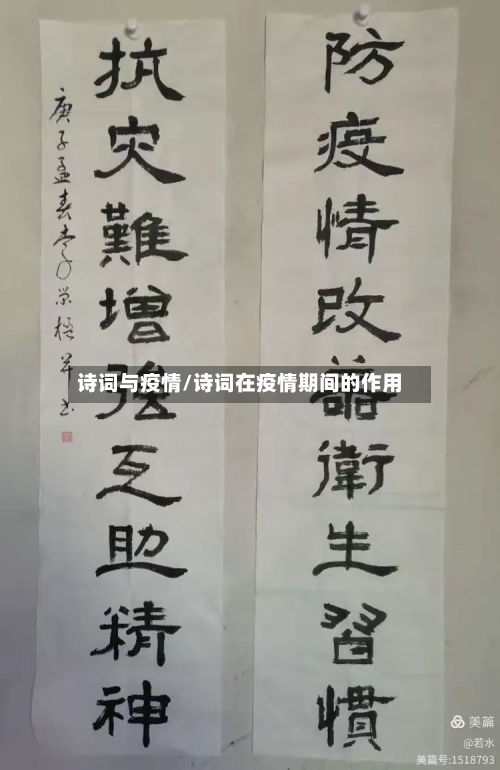 防疫情改善衛生習慣
抗災難增強互助精神
庚子孟春李荣梧並书
诗词与疫情/诗词在疫情期间的作用
美篇
@若水
美篇号:1518793